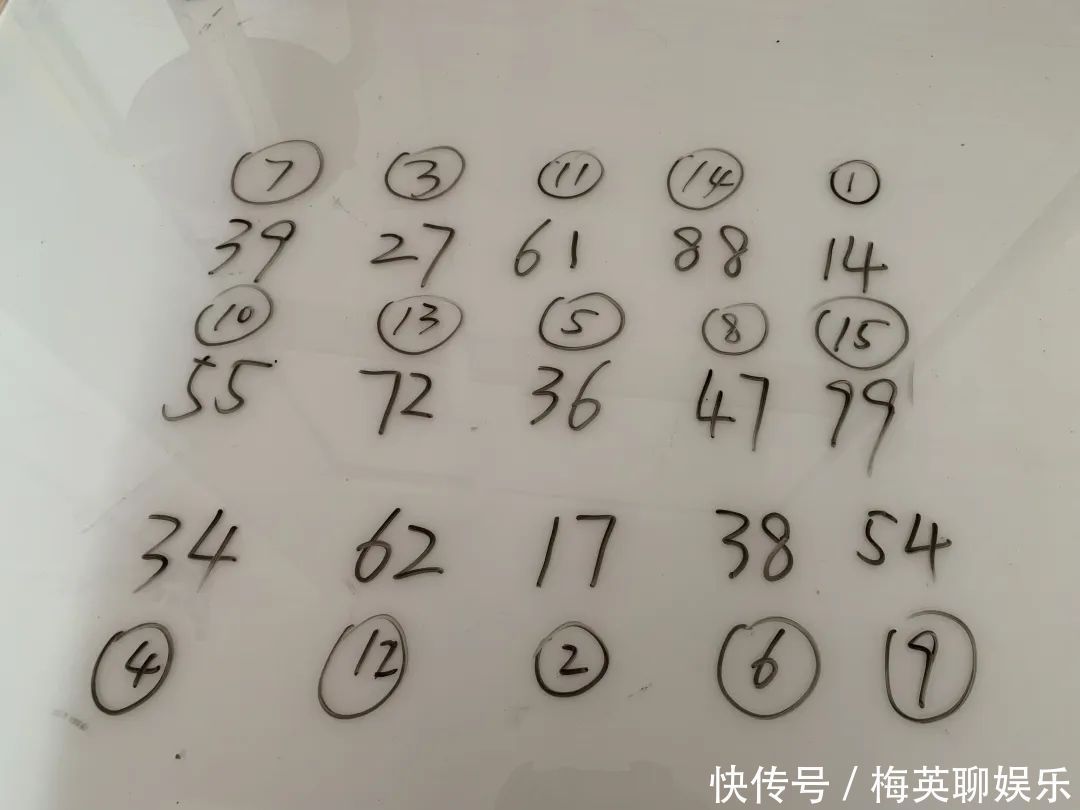 ⑦ ③ ⑪ ⑭ ①
39 27 61 88 14
⑩ ⑬ ⑤ ⑧ ⑮
55 72 36 47 99
34 62 17 38 54
④ ⑫ ② ⑥ ⑨
快传号 / 梅英聊娱乐